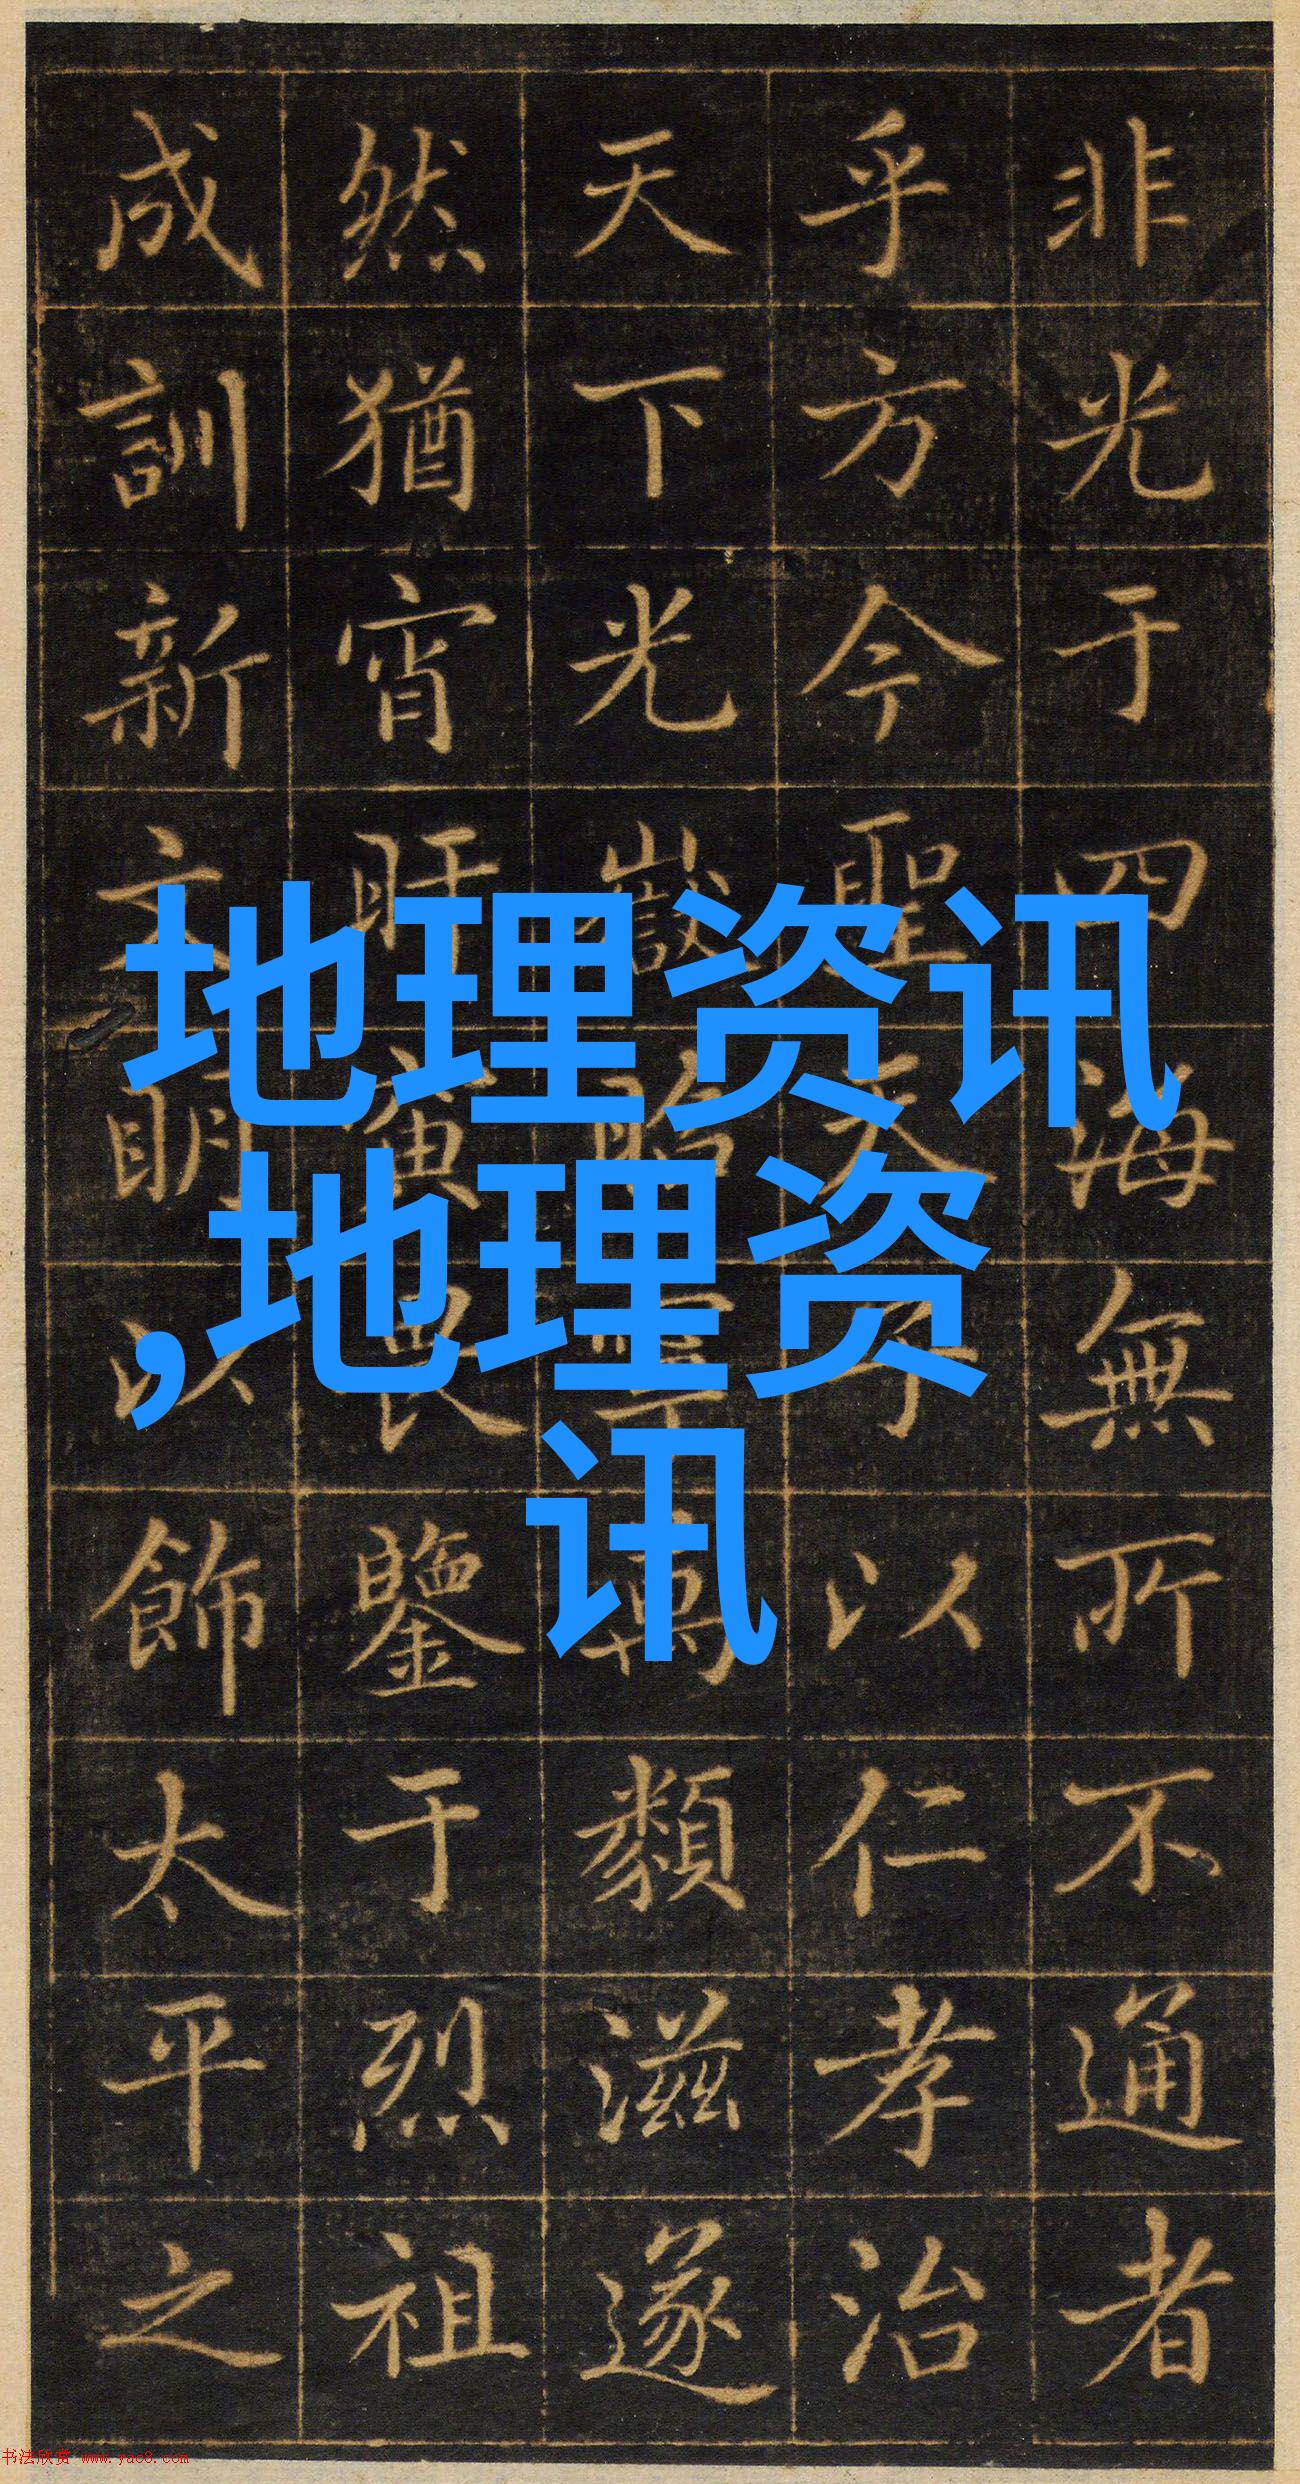 地理资讯
,地理资
讯
非光于四海無所不通者
乎方今聖天子以仁孝治
天下光嶽類滋遂
然猶宵旰寅畏鑒于烈祖
成訓新文明以飾太平之
书法欣赏 www.yac8.com